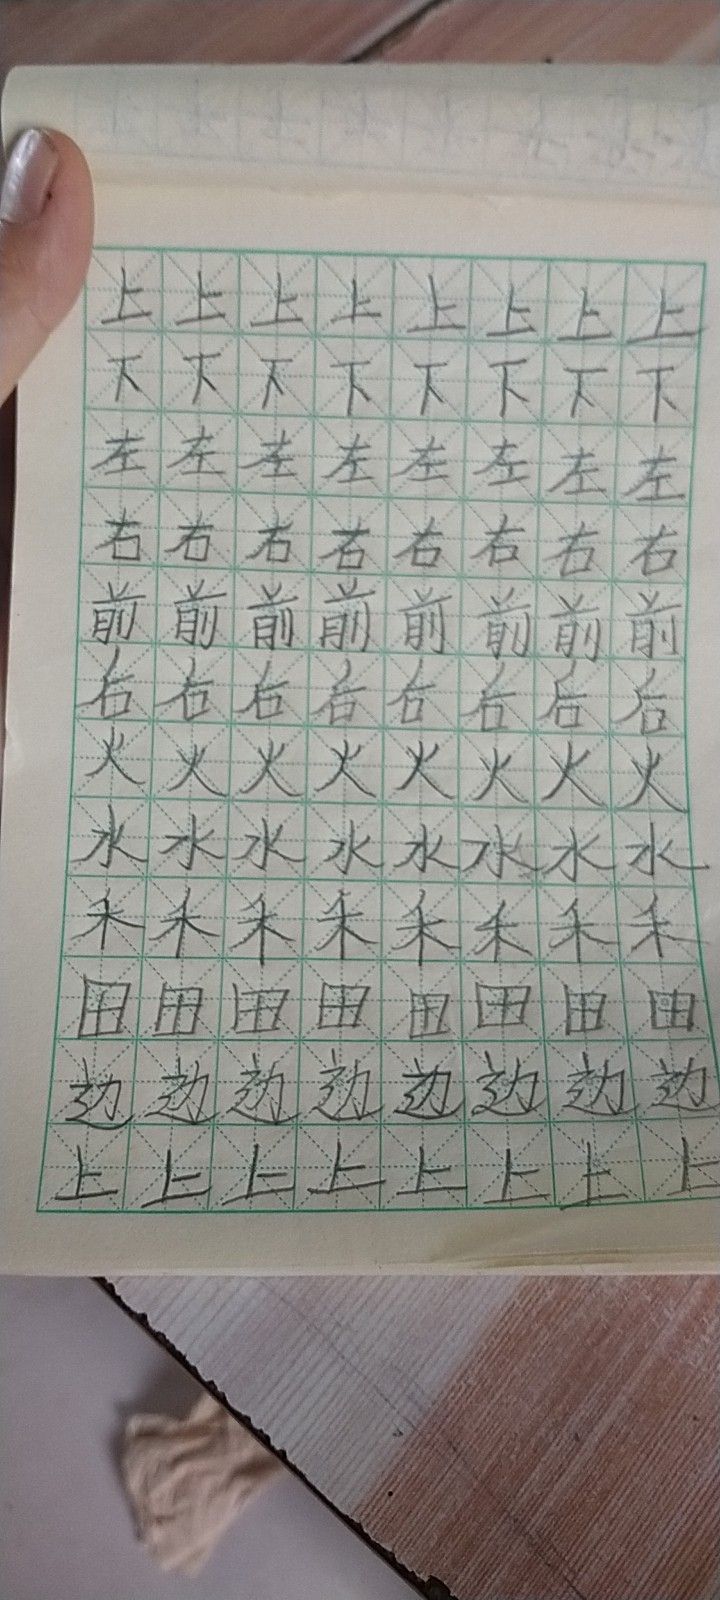 上上上上上上上上
下下下下下下下下
左左左左左左左左
右右右右右右右右
前前前前前前前前
后后后后后后后后
火火火火火火火火
水水水水水水水水
禾禾禾禾禾禾禾禾
田田田田田田田田
边边边边边边边边
上上上上上上上上